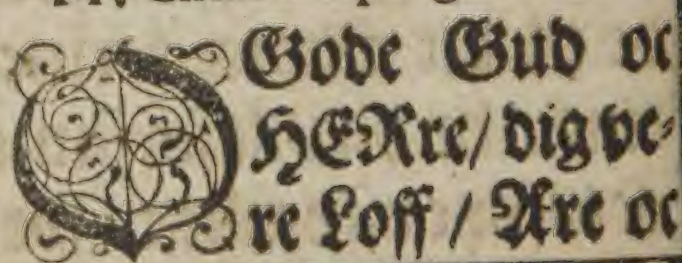 O Gode Gud oc
HERre / dig ve-
re Loff / Ære oc